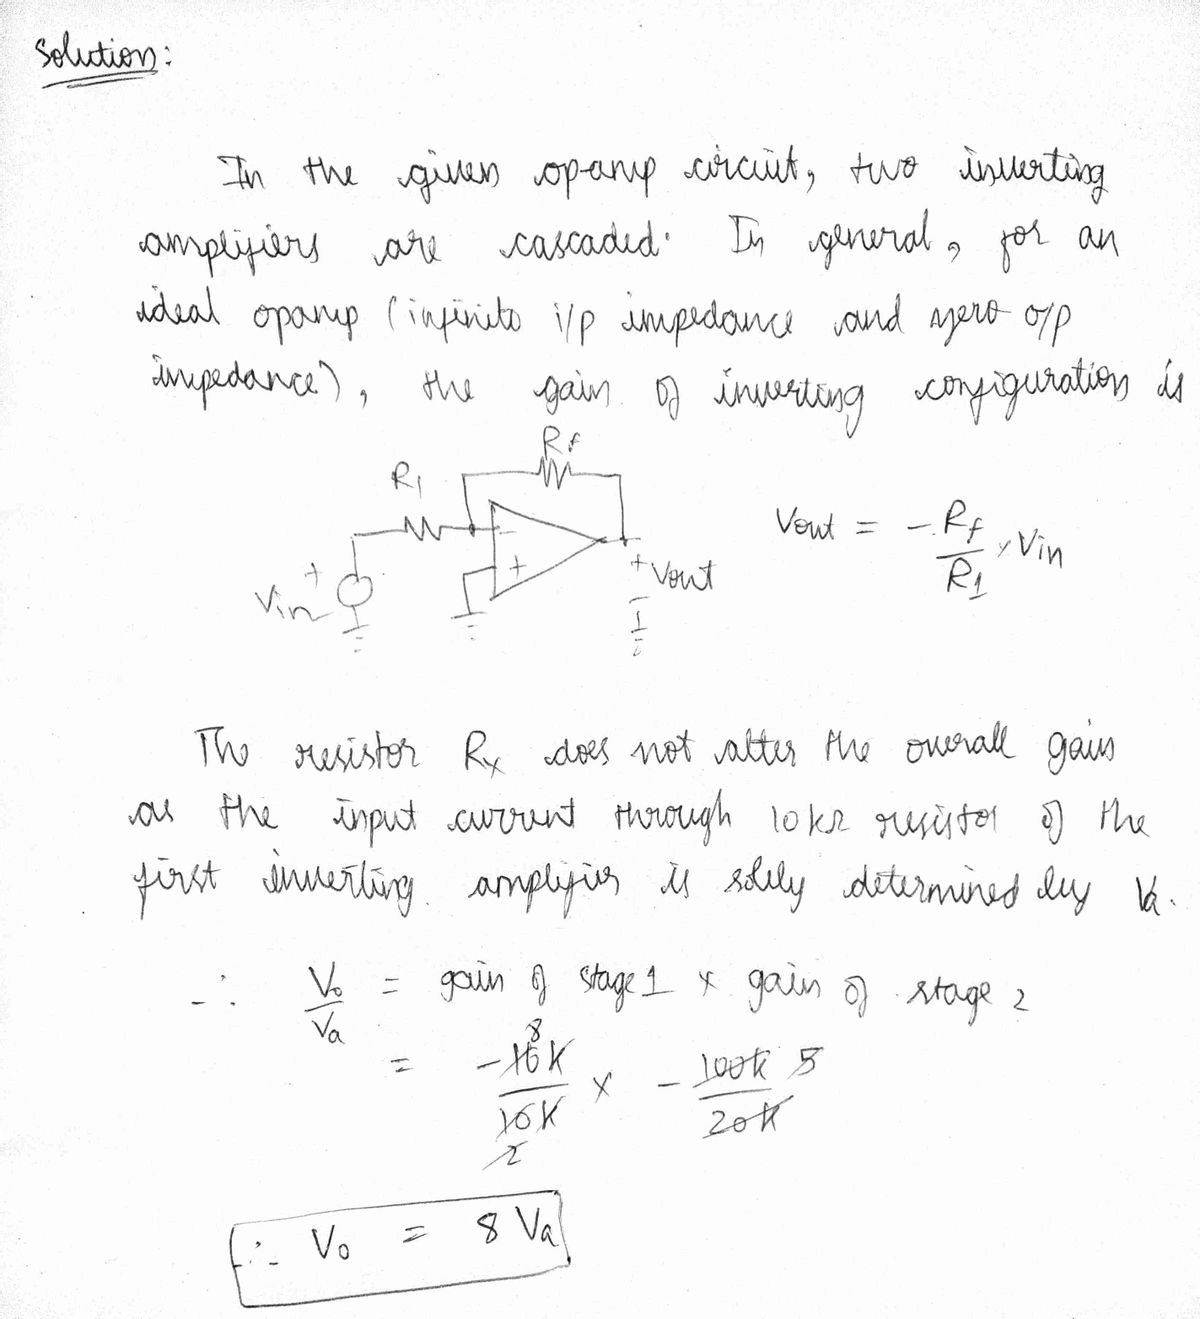 Solution:
In the given opamp circuit, two inverting
amplifiers are cascaded. In general, for an
ideal opamp (infinite i/p impedance and zero o/p
impedance), the gain of inverting configuration is
Rf
R1
Vout = -Rf/R1 × Vin
+ - +
Vin + Vout -
The resistor Rx does not alter the overall gain
as the input current through 10kΩ resistor of the
first inverting amplifier is solely determined by Va.
∴ Vo/Va = gain of stage 1 × gain of stage 2
= -16k/10k × -100k/20k
8 2 5
∴ Vo = 8 Va